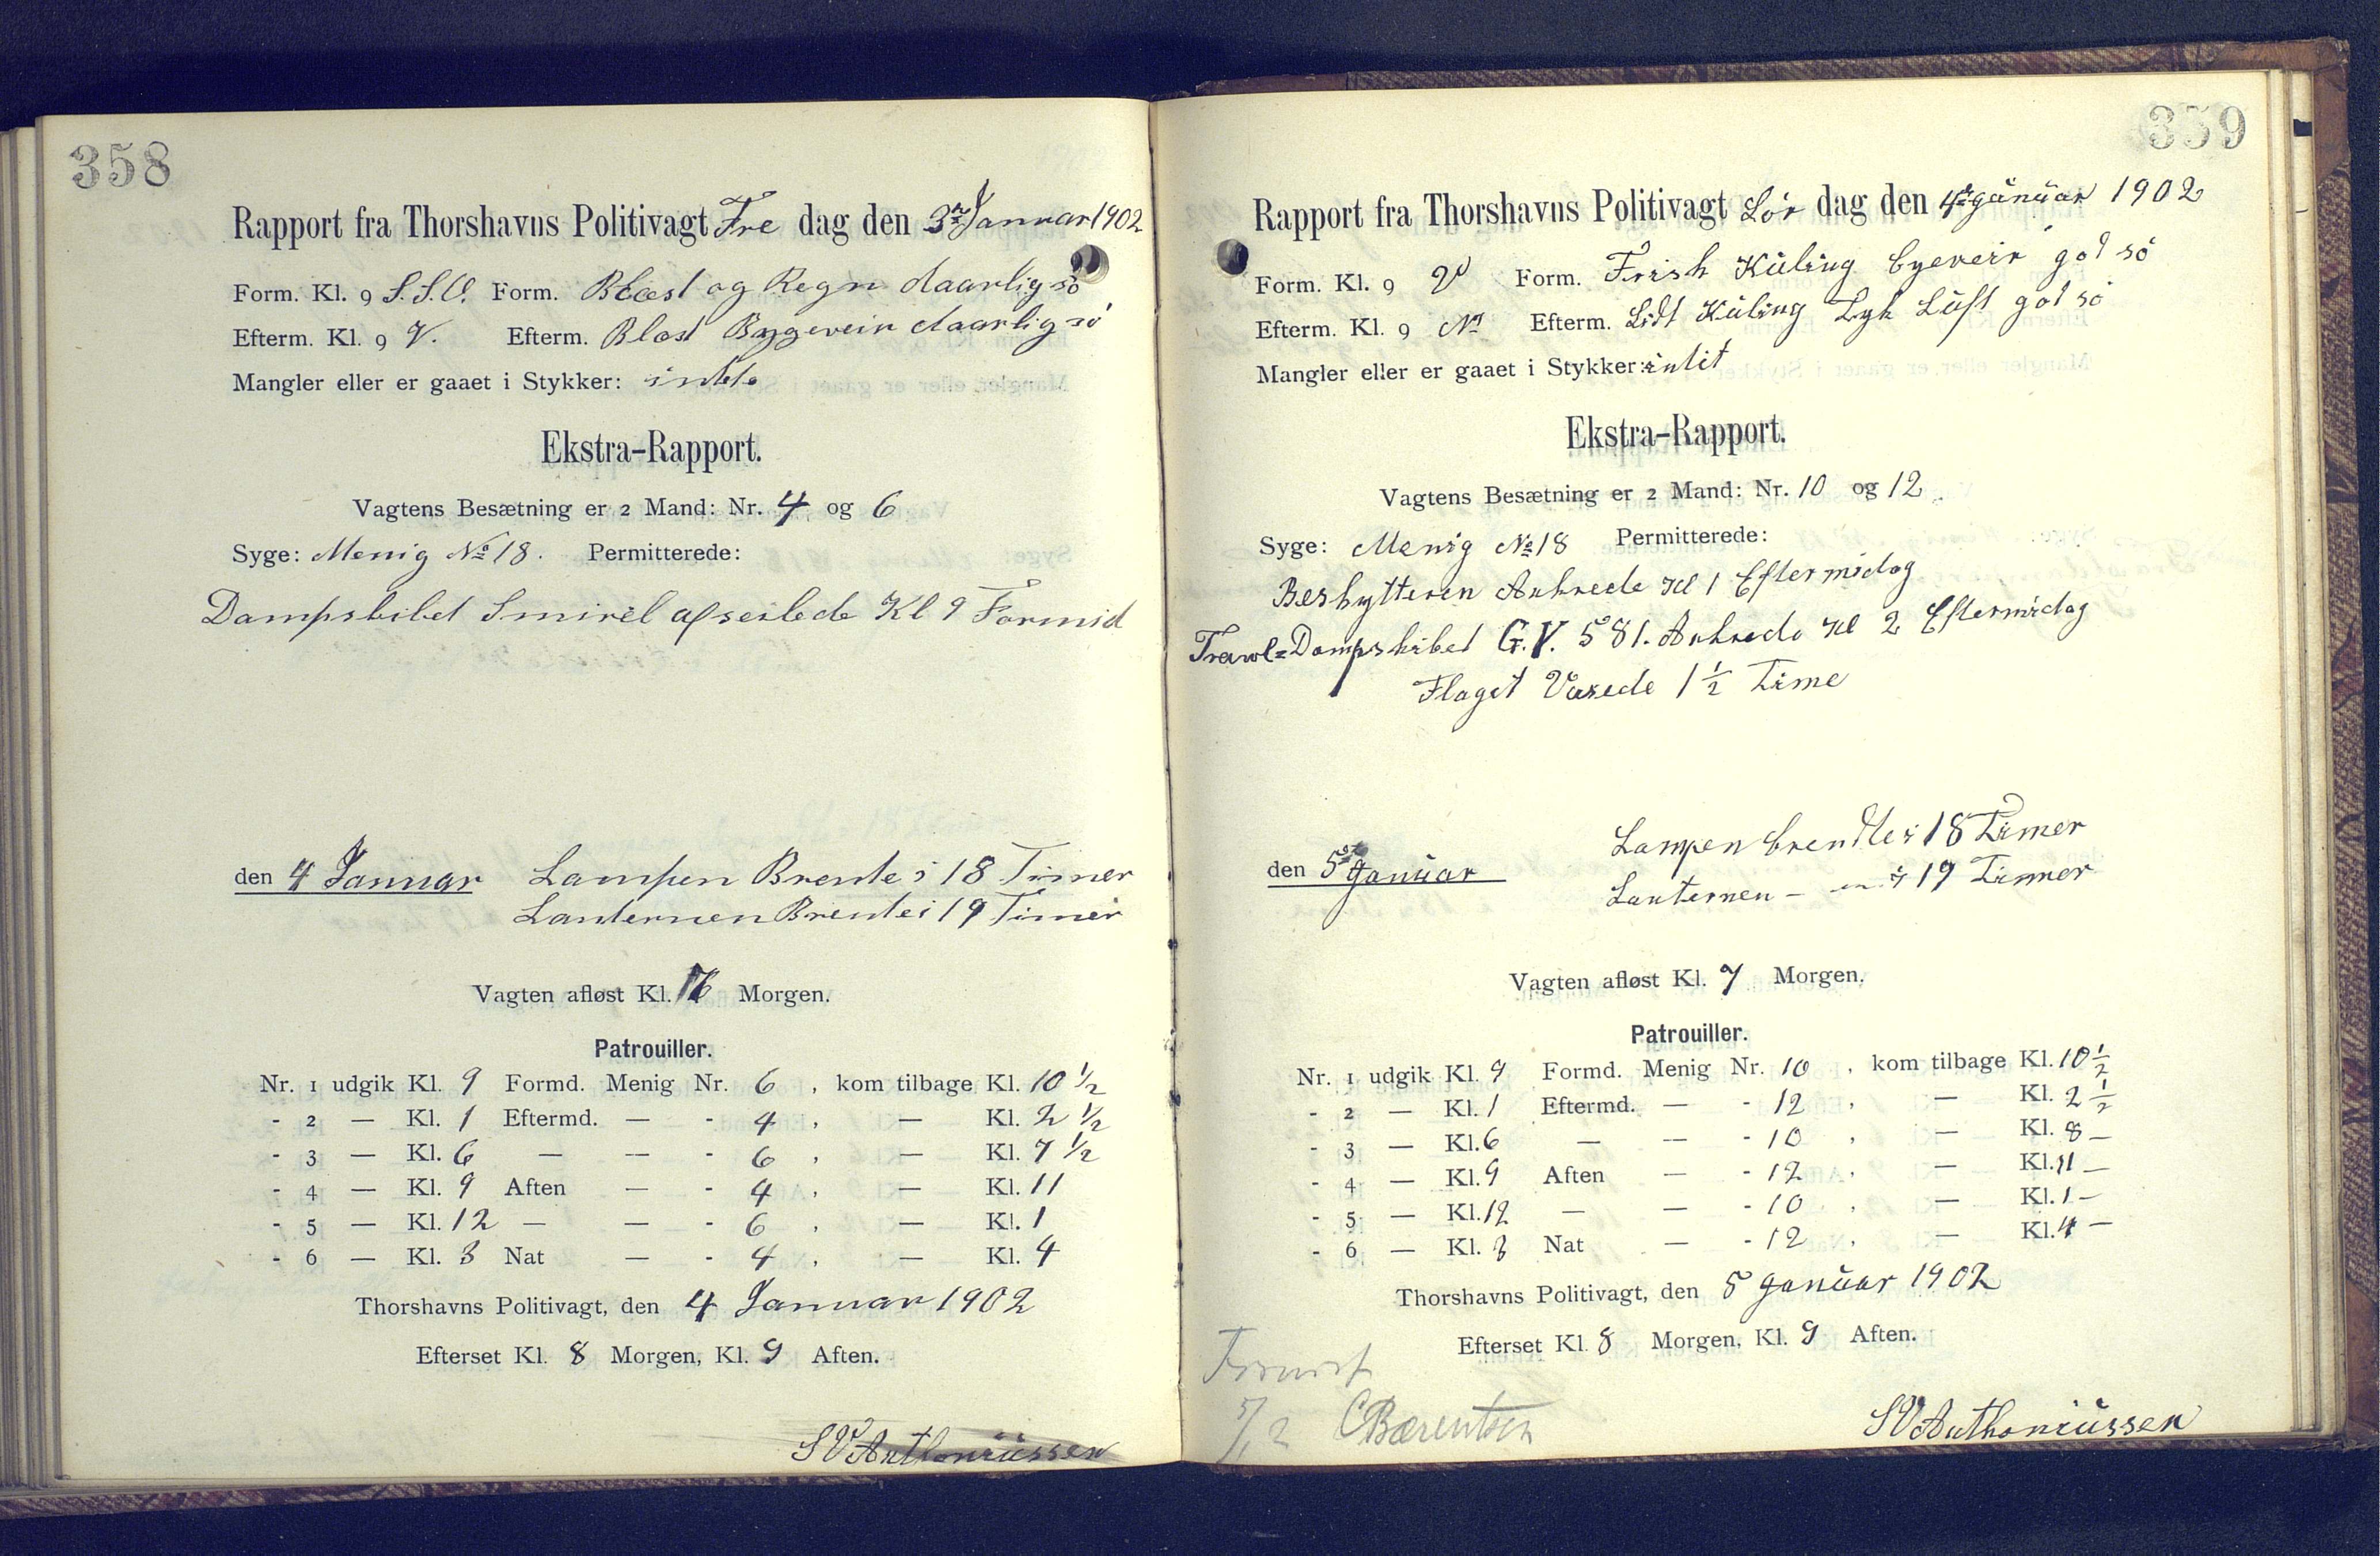 358
Rapport fra Thorshavns Politivagt Fre dag den 3die Januar 1902
Form. Kl. 9 S.S.V. Form. Blæst og Regn daarlig sö
Efterm. Kl. 9 V. Efterm. Blæst Bygevein daarlig sö
Mangler eller er gaaet i Stykker: intet
Ekstra-Rapport.
Vagtens Besætning er 2 Mand: Nr. 4 og 6
Syge: Menig No 18. Permitterede:
Dampskibet Smiril afseilede Kl 9 Formid
den 4 Januar Lampen Brente i 18 Timer
Lanternen Brente i 19 Timer
Vagten afløst Kl. Morgen.
Patrouiller.
Nr. 1 udgik Kl. 9 Formd. Menig Nr. 6, kom tilbage Kl. 10 1/2
- 2 — Kl. 1 Eftermd. — - 4, — Kl. 2 1/2
- 3 — Kl. 6 — — - 6, — Kl. 7 1/2
- 4 — Kl. 9 Aften — - 4, — Kl. 11
- 5 — Kl. 12 — — - 6, — Kl. 1
- 6 — Kl. 3 Nat — - 4, — Kl. 4
Thorshavns Politivagt, den 4 Januar 1902
Efterset Kl. 8 Morgen, Kl. 9 Aften.
SVAnthoniussen
359
Rapport fra Thorshavns Politivagt Lör dag den 4de Januar 1902
Form. Kl. 9 V Form. Frisk Kuling byeveir god sö
Efterm. Kl. 9 N Efterm. Lidt Kuling Tyk Luft god sö
Mangler eller er gaaet i Stykker: intit
Ekstra-Rapport.
Vagtens Besætning er 2 Mand: Nr. 10 og 12
Syge: Menig No 18 Permitterede:
Beskytteren Ankrede Kl 1 Eftermidag
Trawl=Dampskibet G.Y. 581. Ankrede Kl 2 Eftermidag
Flaget Varede 1 1/2 Time
den 5te Januar Lampen brendte i 18 Timer
Lanternen - i 19 Timmer
Vagten afløst Kl. 7 Morgen.
Patrouiller.
Nr. 1 udgik Kl. 9 Formd. Menig Nr. 10, kom tilbage Kl. 10 1/2
- 2 — Kl. 1 Eftermd. — - 12, — Kl. 2 1/2
- 3 — Kl. 6 — — - 10, — Kl. 8 —
- 4 — Kl. 9 Aften — - 12, — Kl. 11 —
- 5 — Kl. 12 — — - 10, — Kl. 1 —
- 6 — Kl. 3 Nat — - 12, — Kl. 4 —
Thorshavns Politivagt, den 5 Januar 1902
Efterset Kl. 8 Morgen, Kl. 9 Aften.
5/1 2 CBærentsen
SVAnthoniussen